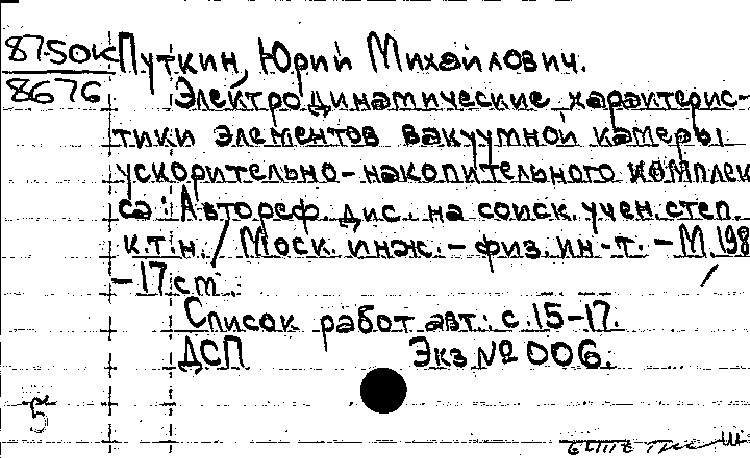 8750к Путкин, Юрий Михайлович.
8676 Электродинамические характерис-
тики элементов вакуумной камеры
ускорительно-накопительного комплек
са: Автореф. дис. на соиск. учен. степ.
к.т.н. / Моск. инж.-физ. ин-т. - М. 198
- 17 ст.
Список работ авт.: с. 15-17.
ДСП Экз № 006.
5